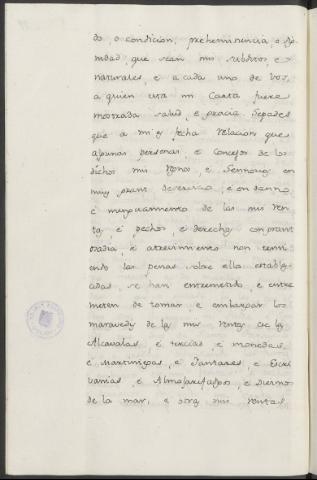 do, o condicion, preheminencia, o dig
nidad, que sean mis subditos, e
naturales, e a cada uno de vos,
a quien esta mi Carta fuere
mostrada salud, e gracia. Sepades
que a mi es fecha relacion que
algunas personas, e Concejos de los
dichos mis Rgnos, e Sennorios, en
muy grant deservicio, e en danno,
e menguamiento de las mis ren
tas, e pechos, e derechos, con grant
osadia, e atrevimiento non temi
endo las penas sobre ello estable
cidas, se han entremetido, e entre
meten de tomar e embargar los
maravedis de las mis rentas de las
Alcavalas, e tercias, e monedas
e Martiniegas, e Yantares, e Escri
vanias, e Almojarifadgos, e diezmos
de la mar, e otras mis rentas